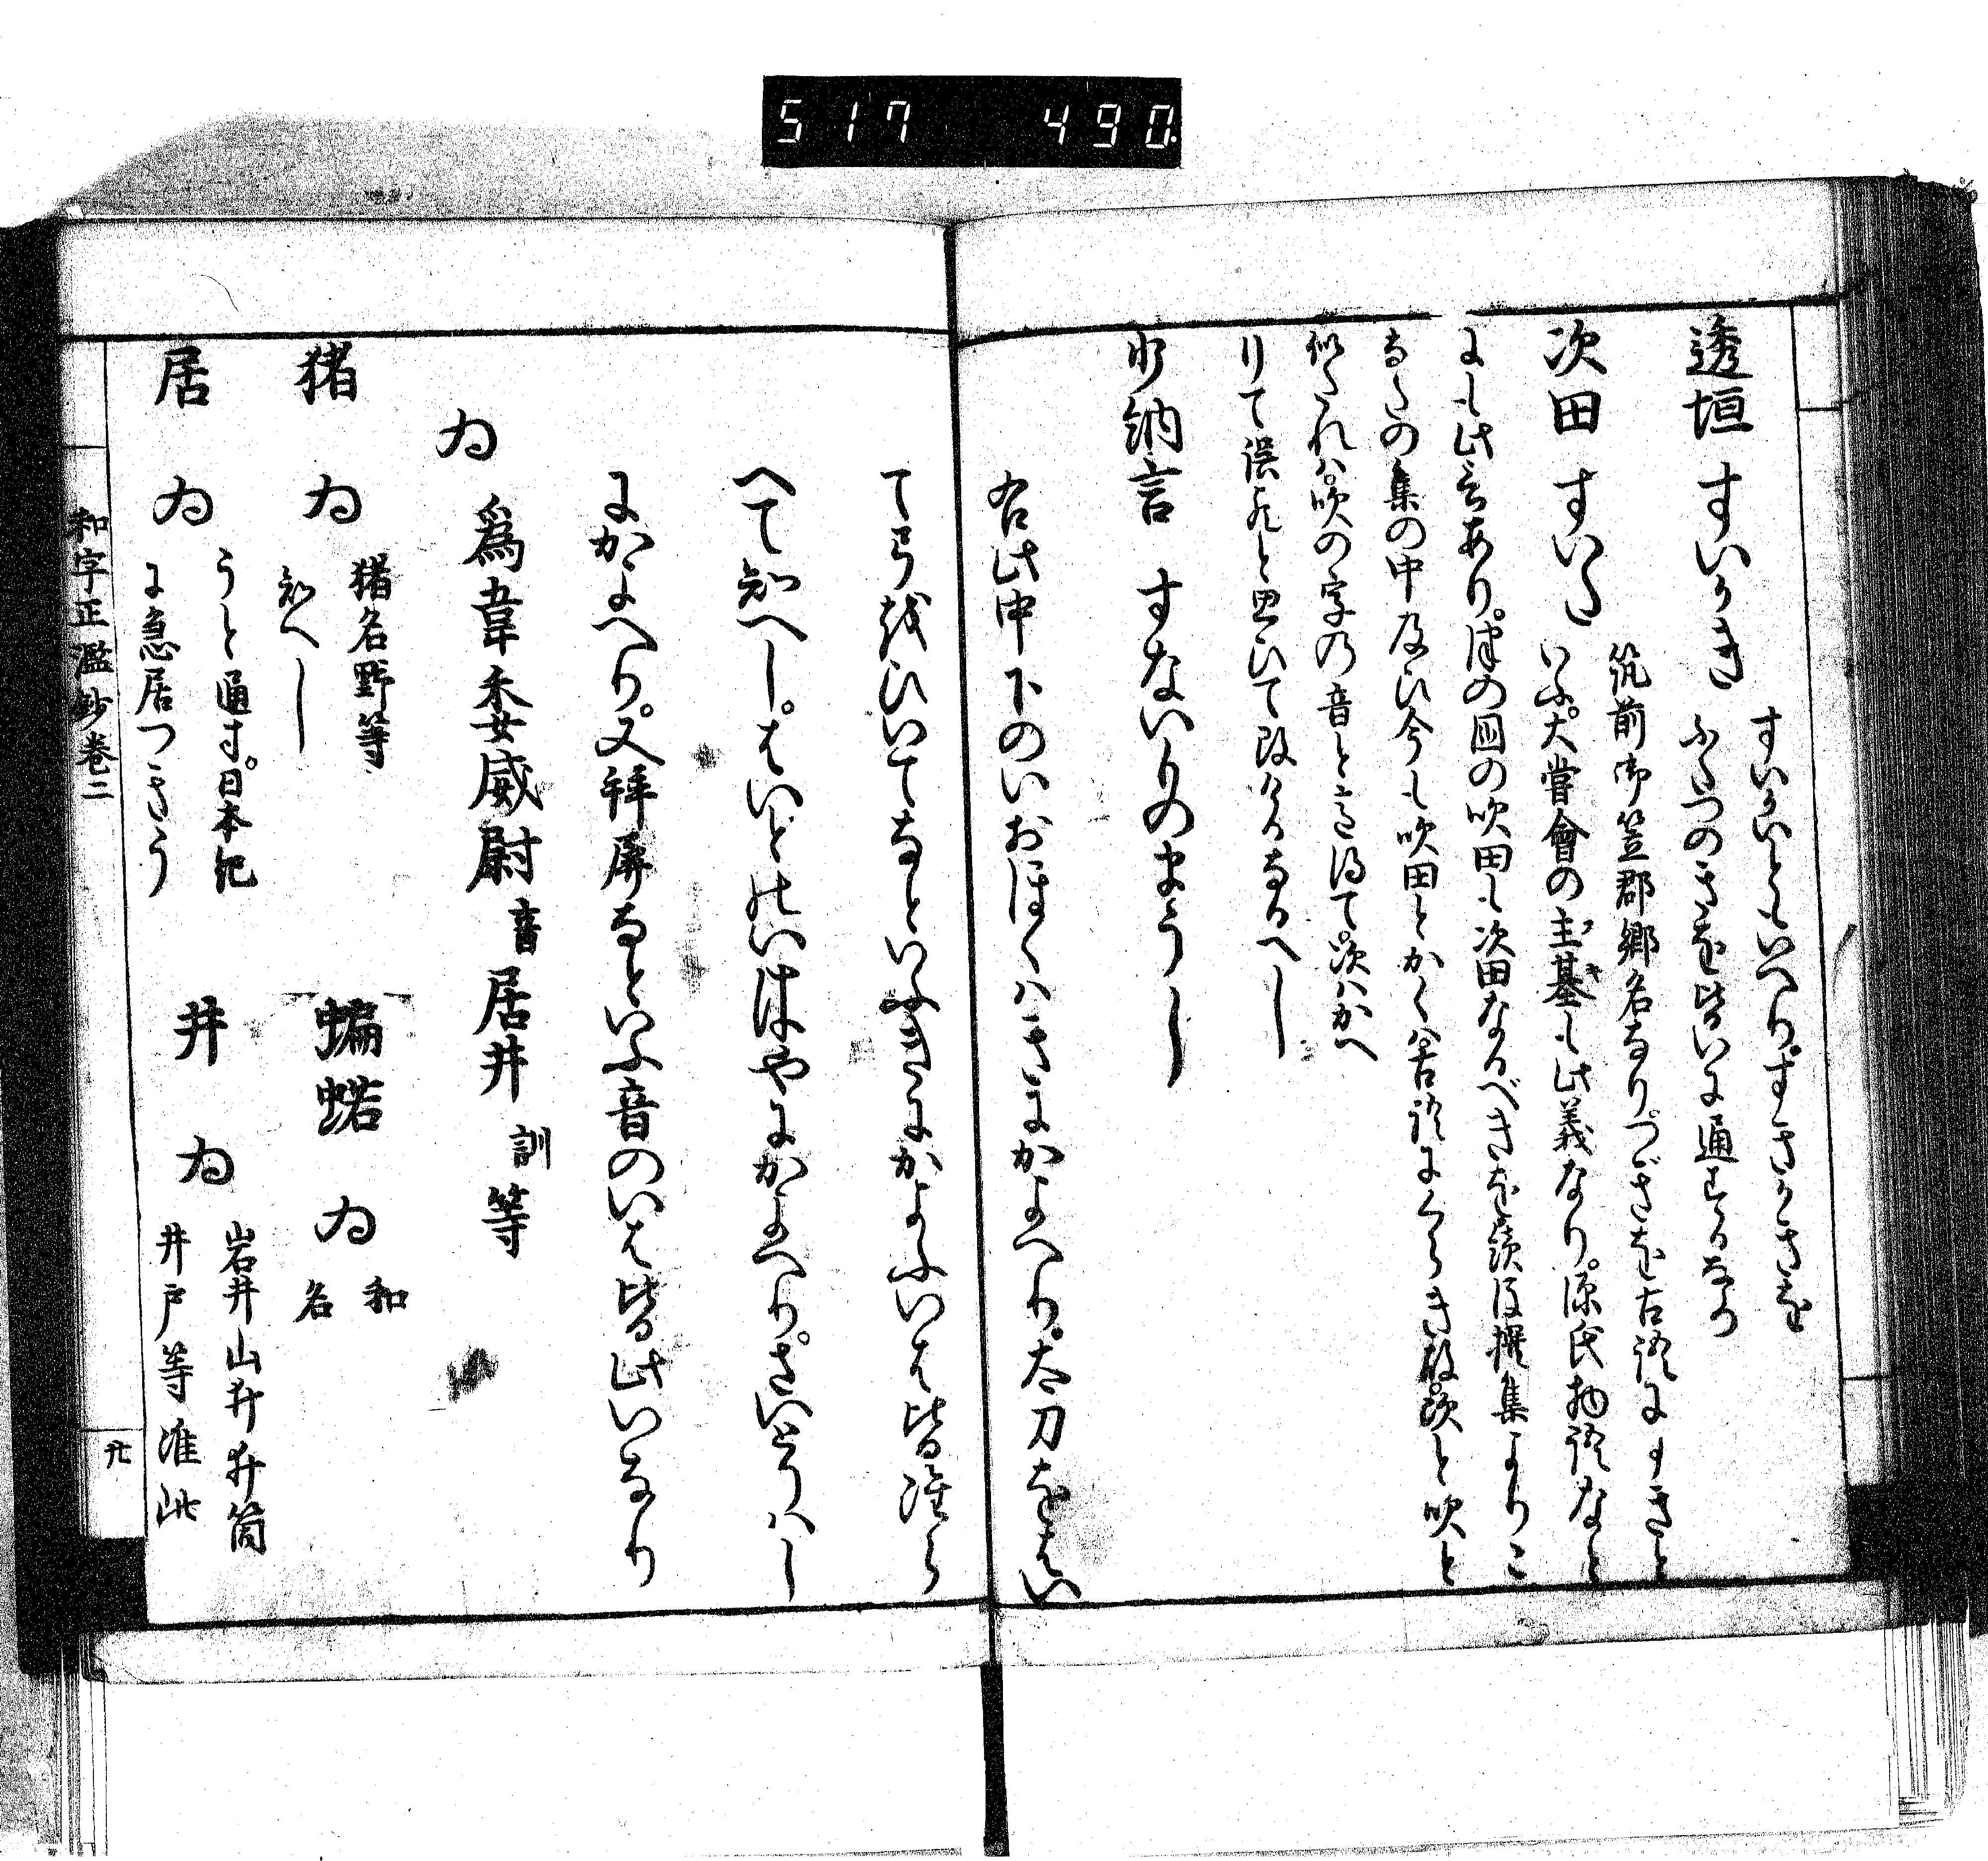 517 490
透垣 すいがき すいかいともいへり。すきかきを
ふたつのきを皆いに通するなり
次田 すいた 筑前御笠郡郷名なり。つぎを古語にすきと
いふ。大嘗會の主基も此義なり。源氏物語なと
にも此言あり。津の国の吹田も次田なるべきを續後撰集よりこ
なたの集の中及ひ今も吹田とかくは古語にくらき故次と吹と
似たれは吹の字の音と意得て次はかへ
りて誤れると思ひて改けるなるへし
少納言 すないものまうし
右此中下のいおほくはきにかよへり。太刀をはい
て弓をひいてなといふきにかよふいは皆准ら
へて知へし。はいとのいはやにかよへり。さいとうはし
にかよへり。又拜屏なといふ音のいは皆此いなり
ゐ 爲韋委威尉音居井訓等
猪 ゐ 猪名野等
知へし
蝙蛣 ゐ 和
名
居 ゐ うと通す。日本紀
に急居つきう
井 ゐ 岩井山井井筒
井戸等准此
和字正濫鈔卷二
廿